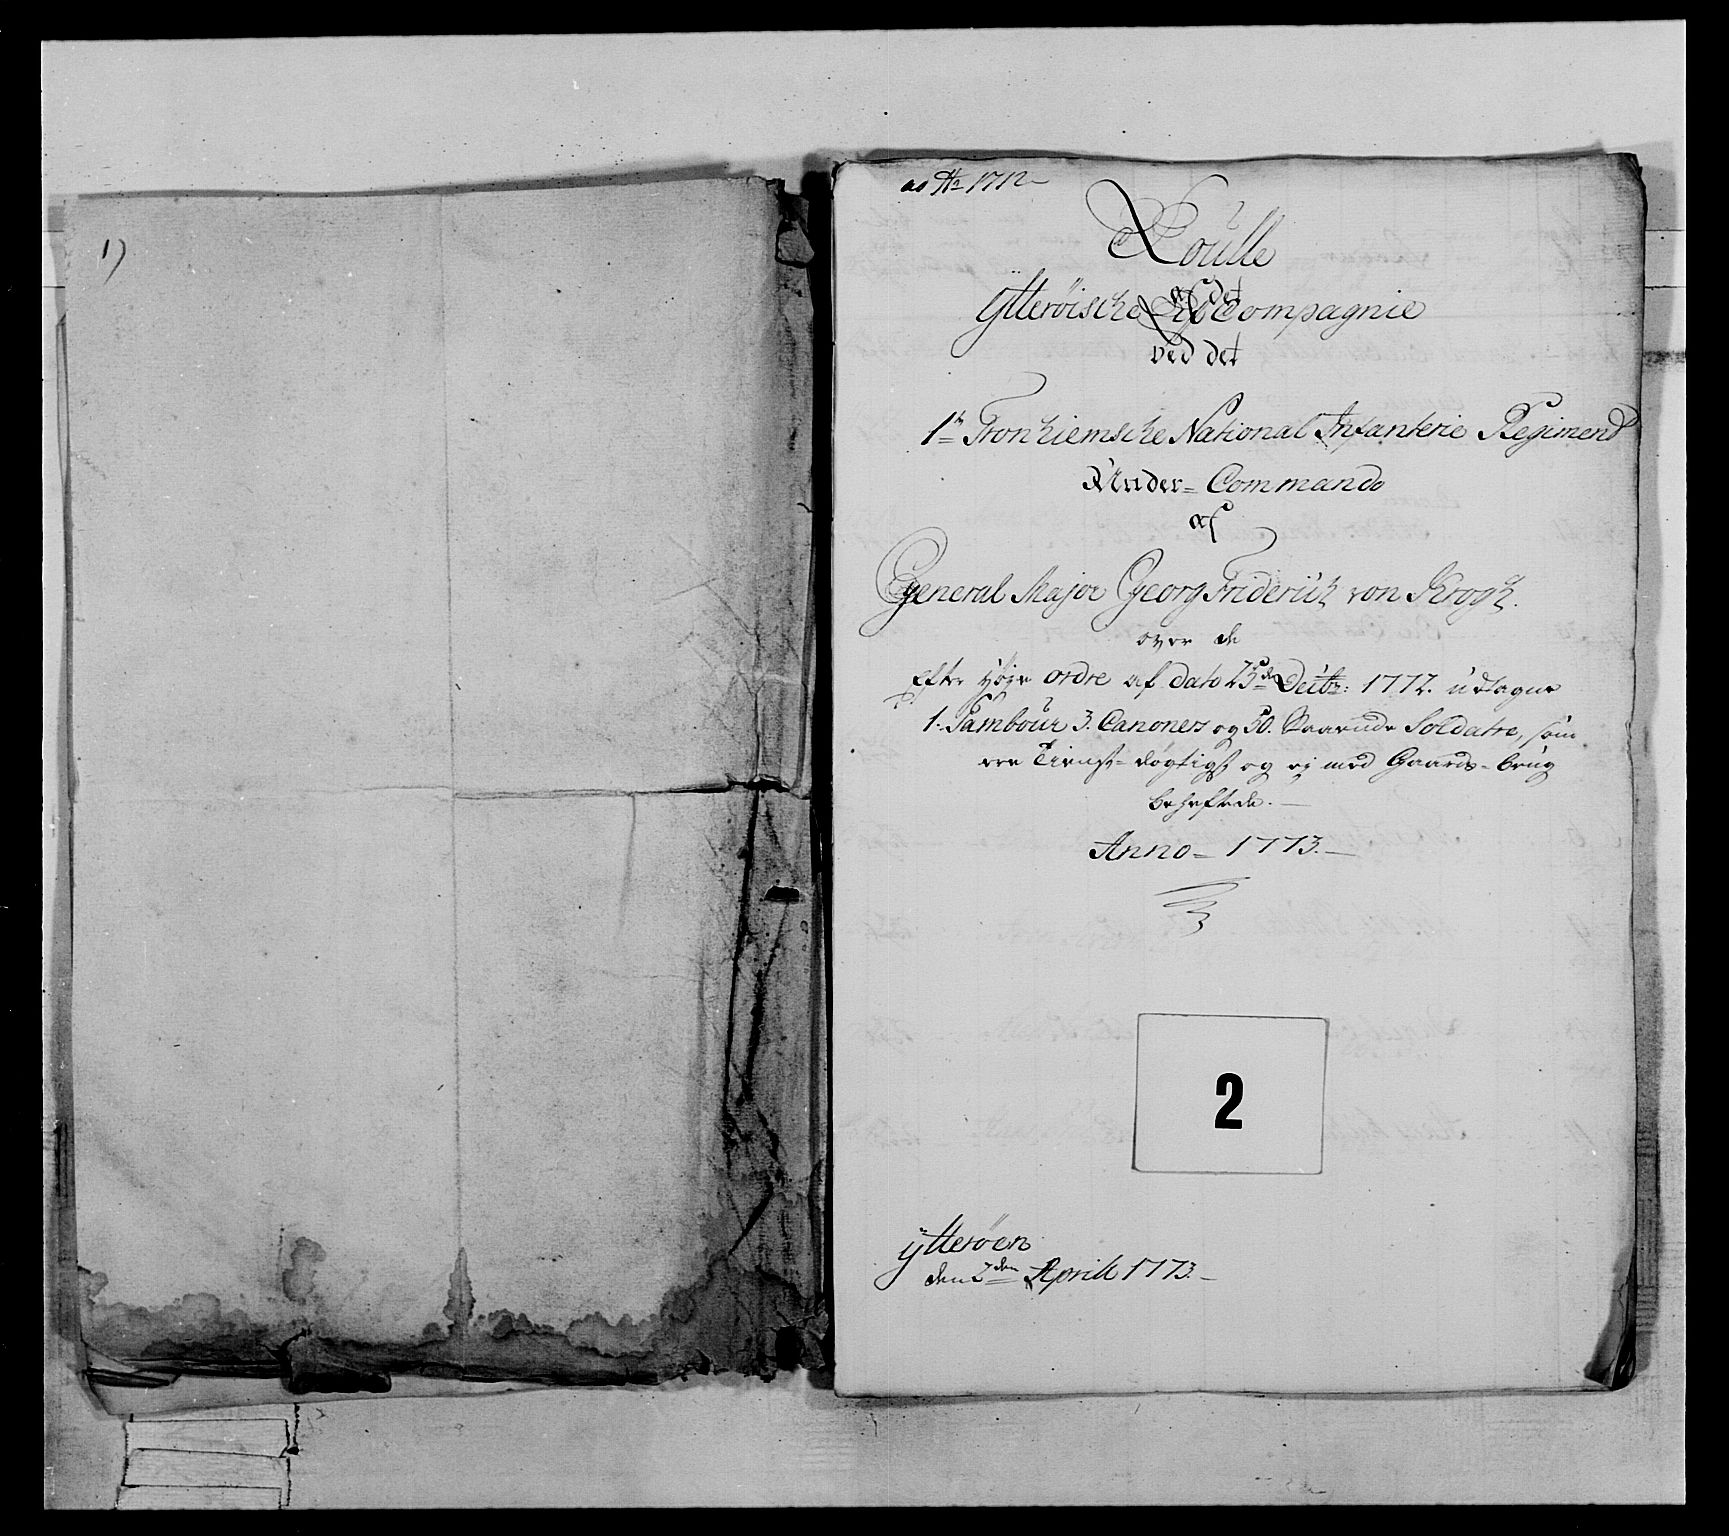 1)
ad No 1712
Roulle
af det
Ytterøische Compagnie
ved det
1te Tronhiemsche National Infanterie Regimend
Under= Commando
af
General Major Georg Friderich von Krogh.
over de
efter høye ordre af dato 25de Decbr: 1772. udtagne
1. Tambour 3. Canoners og 50. Staaende Soldatre, som
ere Tienst=døgtigst og ej med Gaards=brug
beheftede.
Anno= 1773.
2
Ytterøen
den 2den Aprill 1773.